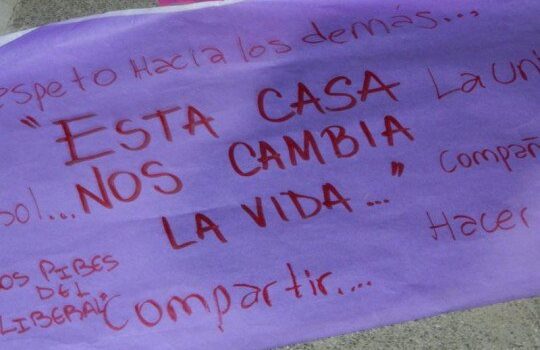 espeto Hacia los demás...,
"ESTA CASA
NOS CAMBIA
LA VIDA..."
La un
bol...
Compañ
Hacer
OS PIBES
DEL
LIBERAL"
Compartir....